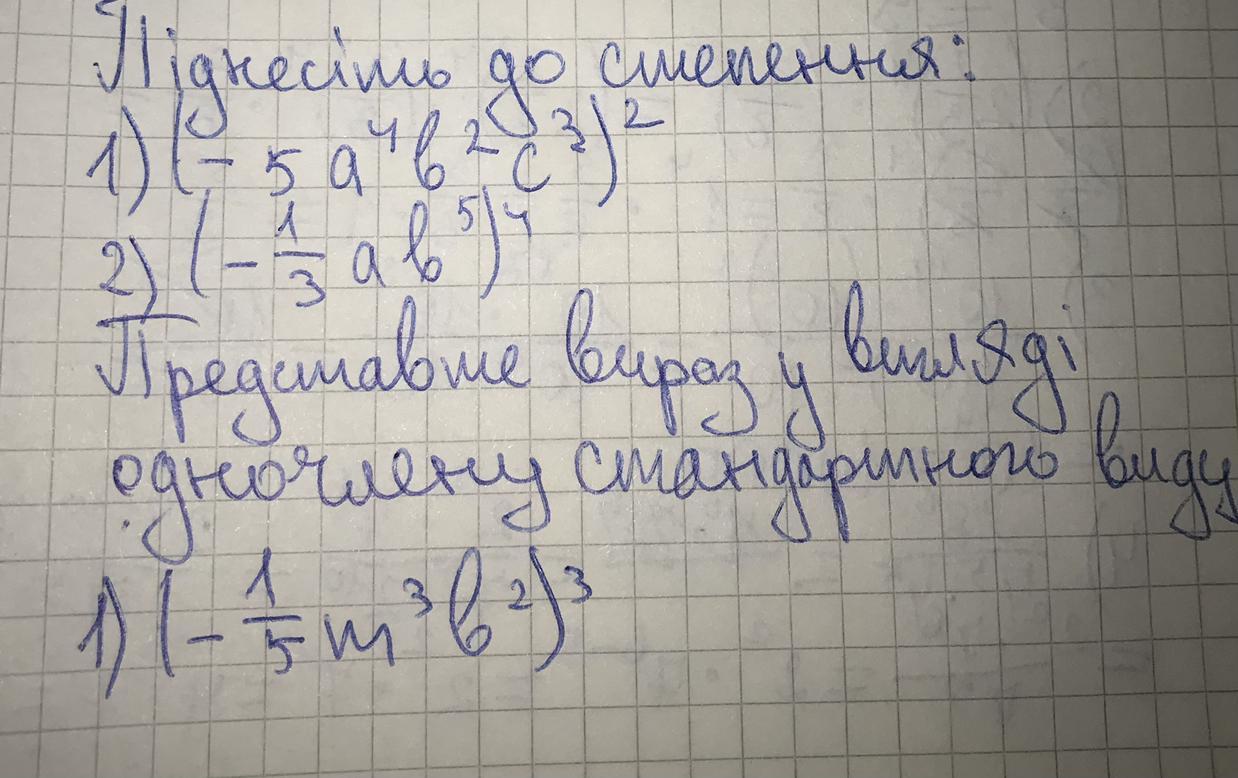 Піднесіть до степення:
1) (- 5 a⁴ b² c³)²
2) (- 1/3 a b⁵)⁴
Представте вираз у вигляді
одночлену стандартного виду
1) (- 1/5 m³ b²)³